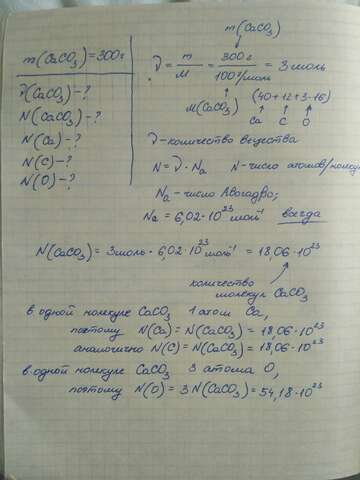 m(CaCO₃)
m(CaCO₃)=300г
ν = m/M = 300г/100г/моль = 3 моль
ν(CaCO₃)-?
M(CaCO₃) (40+12+3·16)
Ca C O
N(CaCO₃)-?
ν-количество вещества
N(Ca)-?
N=ν·Nₐ N-число атомов/молекул
N(C)-?
N(O)-?
Nₐ-число Авогадро;
Nₐ=6,02·10²³моль⁻¹ всегда
N(CaCO₃)=3моль·6,02·10²³моль⁻¹=18,06·10²³
количество
молекул CaCO₃
в одной молекуле CaCO₃ 1 атом Ca,
поэтому N(Ca)=N(CaCO₃)=18,06·10²³
аналогично N(C)=N(CaCO₃)=18,06·10²³
в одной молекуле CaCO₃ 3 атома O,
поэтому N(O)=3N(CaCO₃)=54,18·10²³